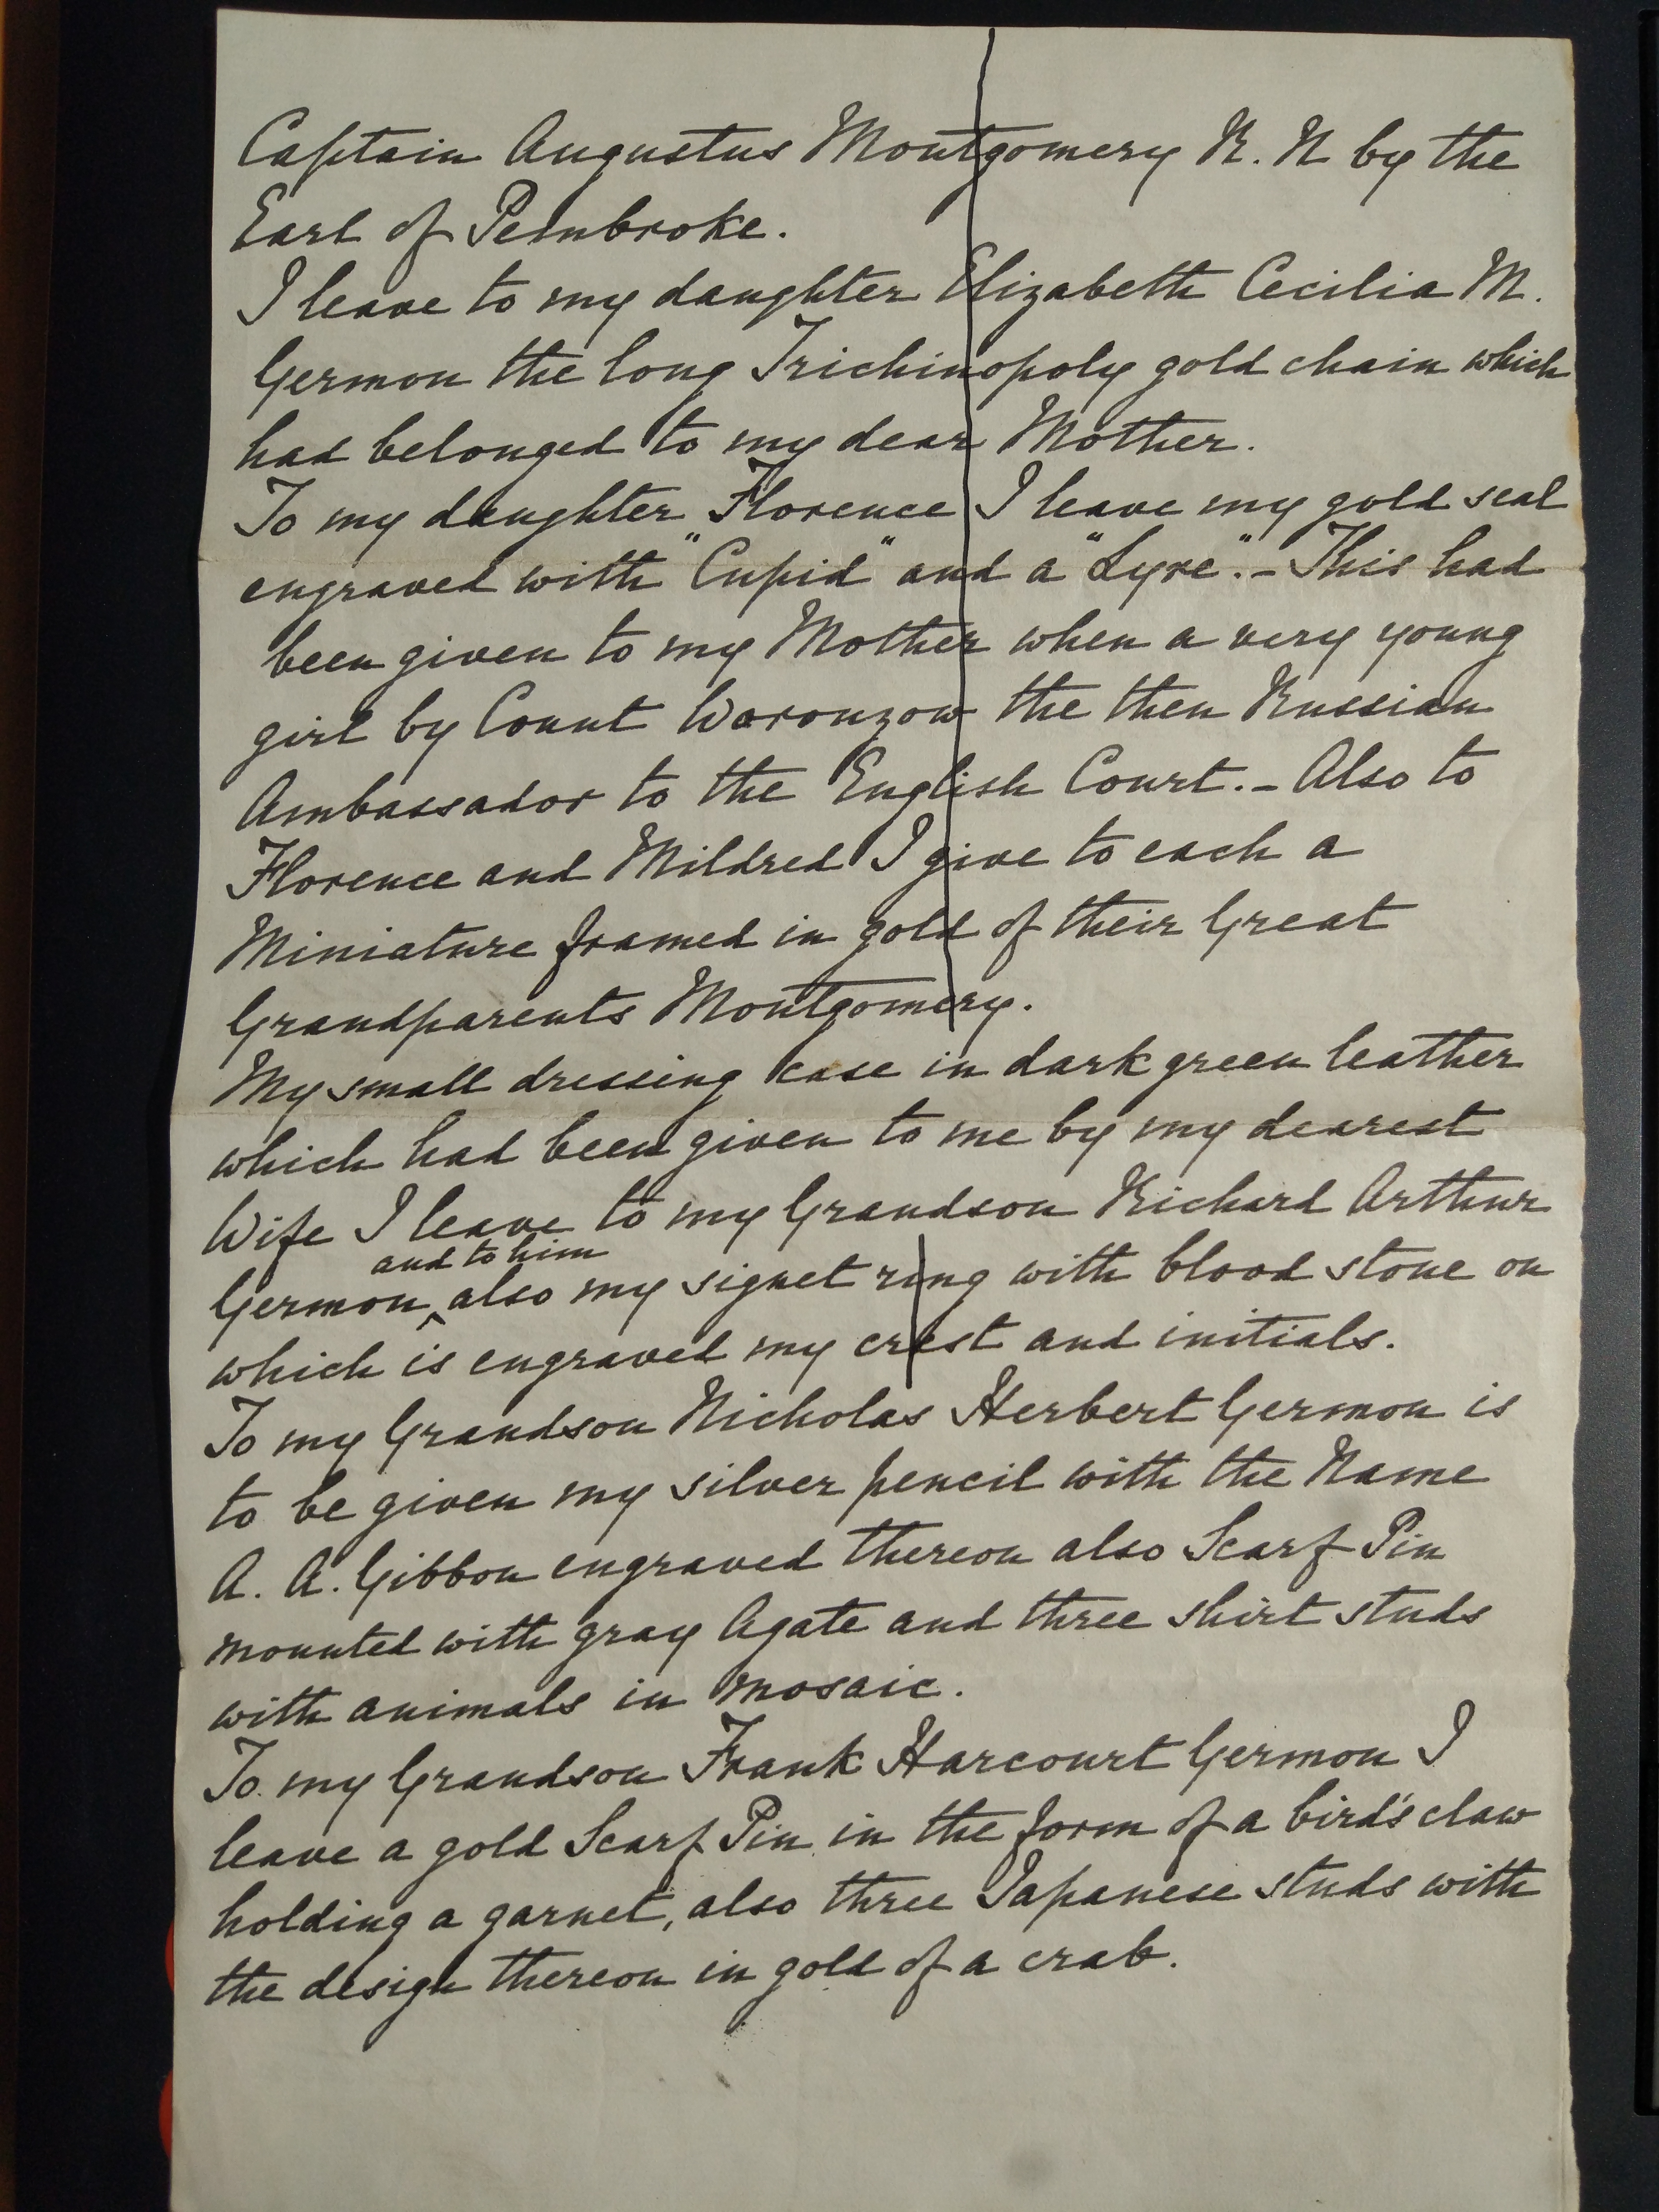 Captain Augustus Montgomery R. N by the
Earl of Pembroke.
I leave to my daughter Elizabeth Cecilia M.
Germon the long Trichinopoly gold chain which
had belonged to my dear Mother.
To my daughter Florence I leave my gold seal
engraved with "Cupid" and a "Lyre". - This had
been given to my Mother when a very young
girl by Count Woronzow the then Russian
Ambassador to the English Court. - Also to
Florence and Mildred I give to each a
Miniature framed in gold of their Great
Grandparents Montgomery.
My small dressing case in dark green leather
which had been given to me by my dearest
Wife I leave to my Grandson Richard Arthur
and to him
Germon ‸ also my signet ring with blood stone on
which is engraved my crest and initials.
To my Grandson Nicholas Herbert Germon is
to be given my silver pencil with the Name
A. A. Gibbon engraved thereon also Scarf Pin
mounted with gray Agate and three shirt studs
with animals in mosaic.
To my Grandson Frank Harcourt Germon I
leave a gold Scarf Pin in the form of a bird's claw
holding a garnet, also three Japanese studs with
the design thereon in gold of a crab.